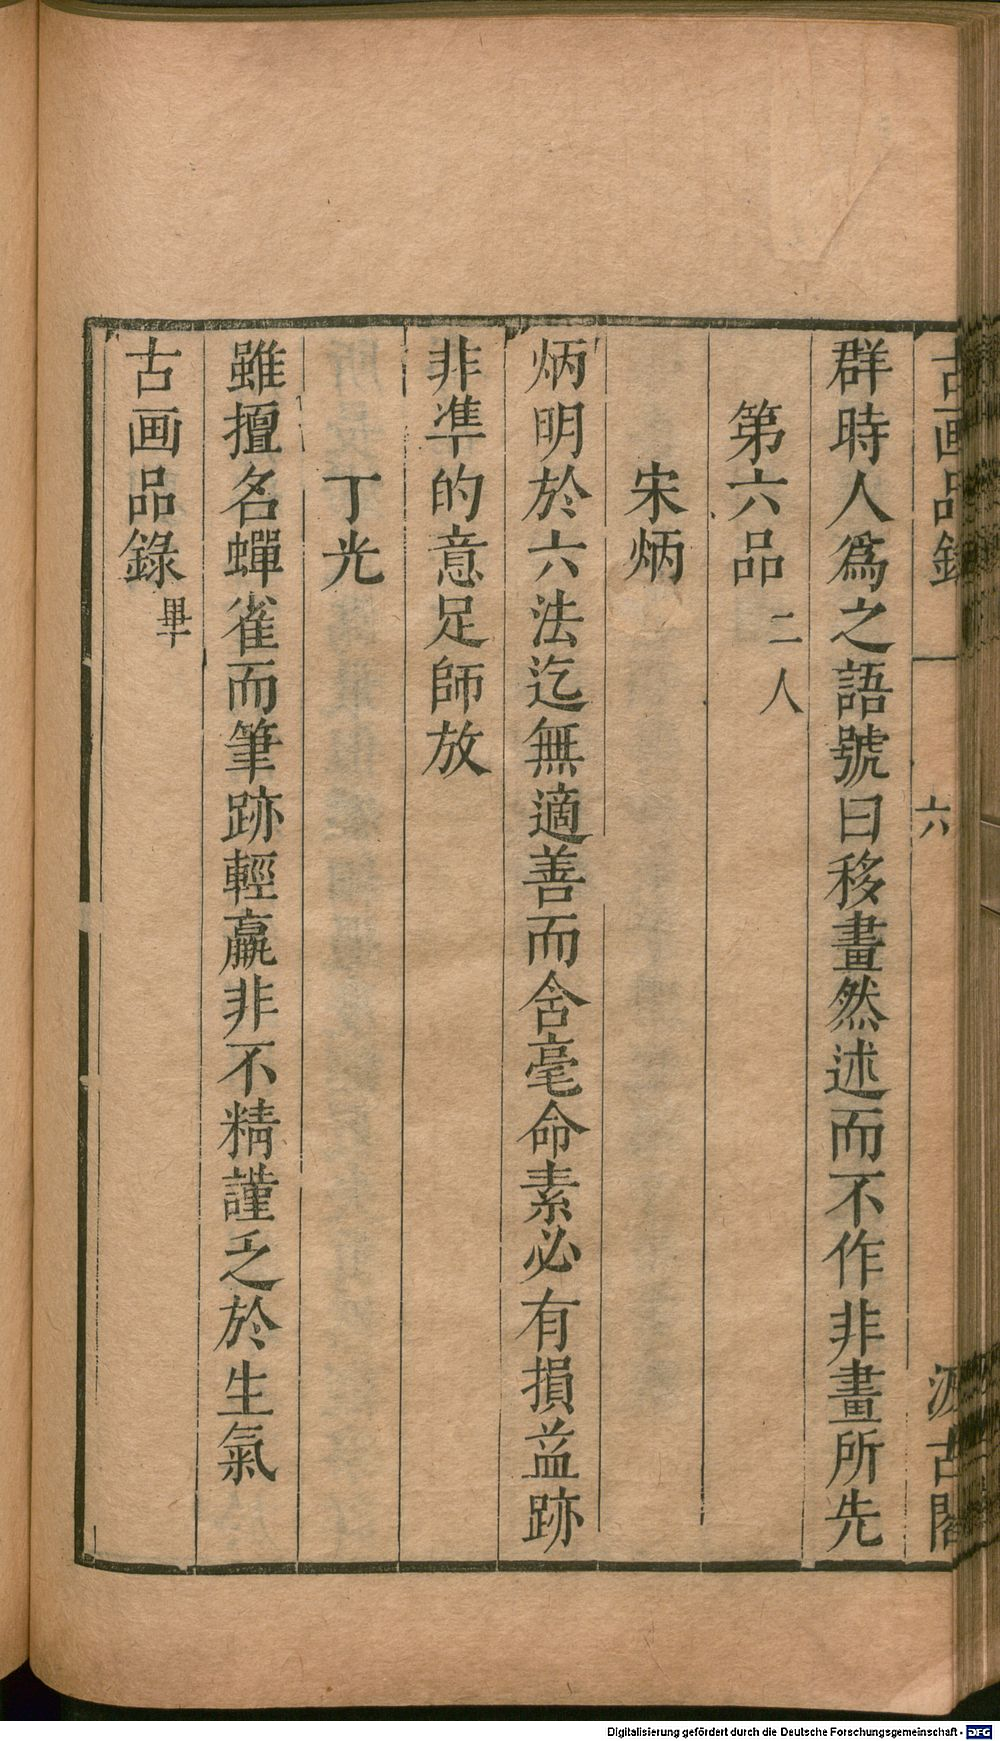 古画品錄 六 汲古閣
群時人爲之語號曰移畫然述而不作非畫所先
第六品 二人
宋炳
炳明於六法迄無適善而含毫命素必有損益跡
非準的意足師放
丁光
雖擅名蟬雀而筆跡輕羸非不精謹乏於生氣
古画品錄 畢
Digitalisierung gefördert durch die Deutsche Forschungsgemeinschaft - DFG